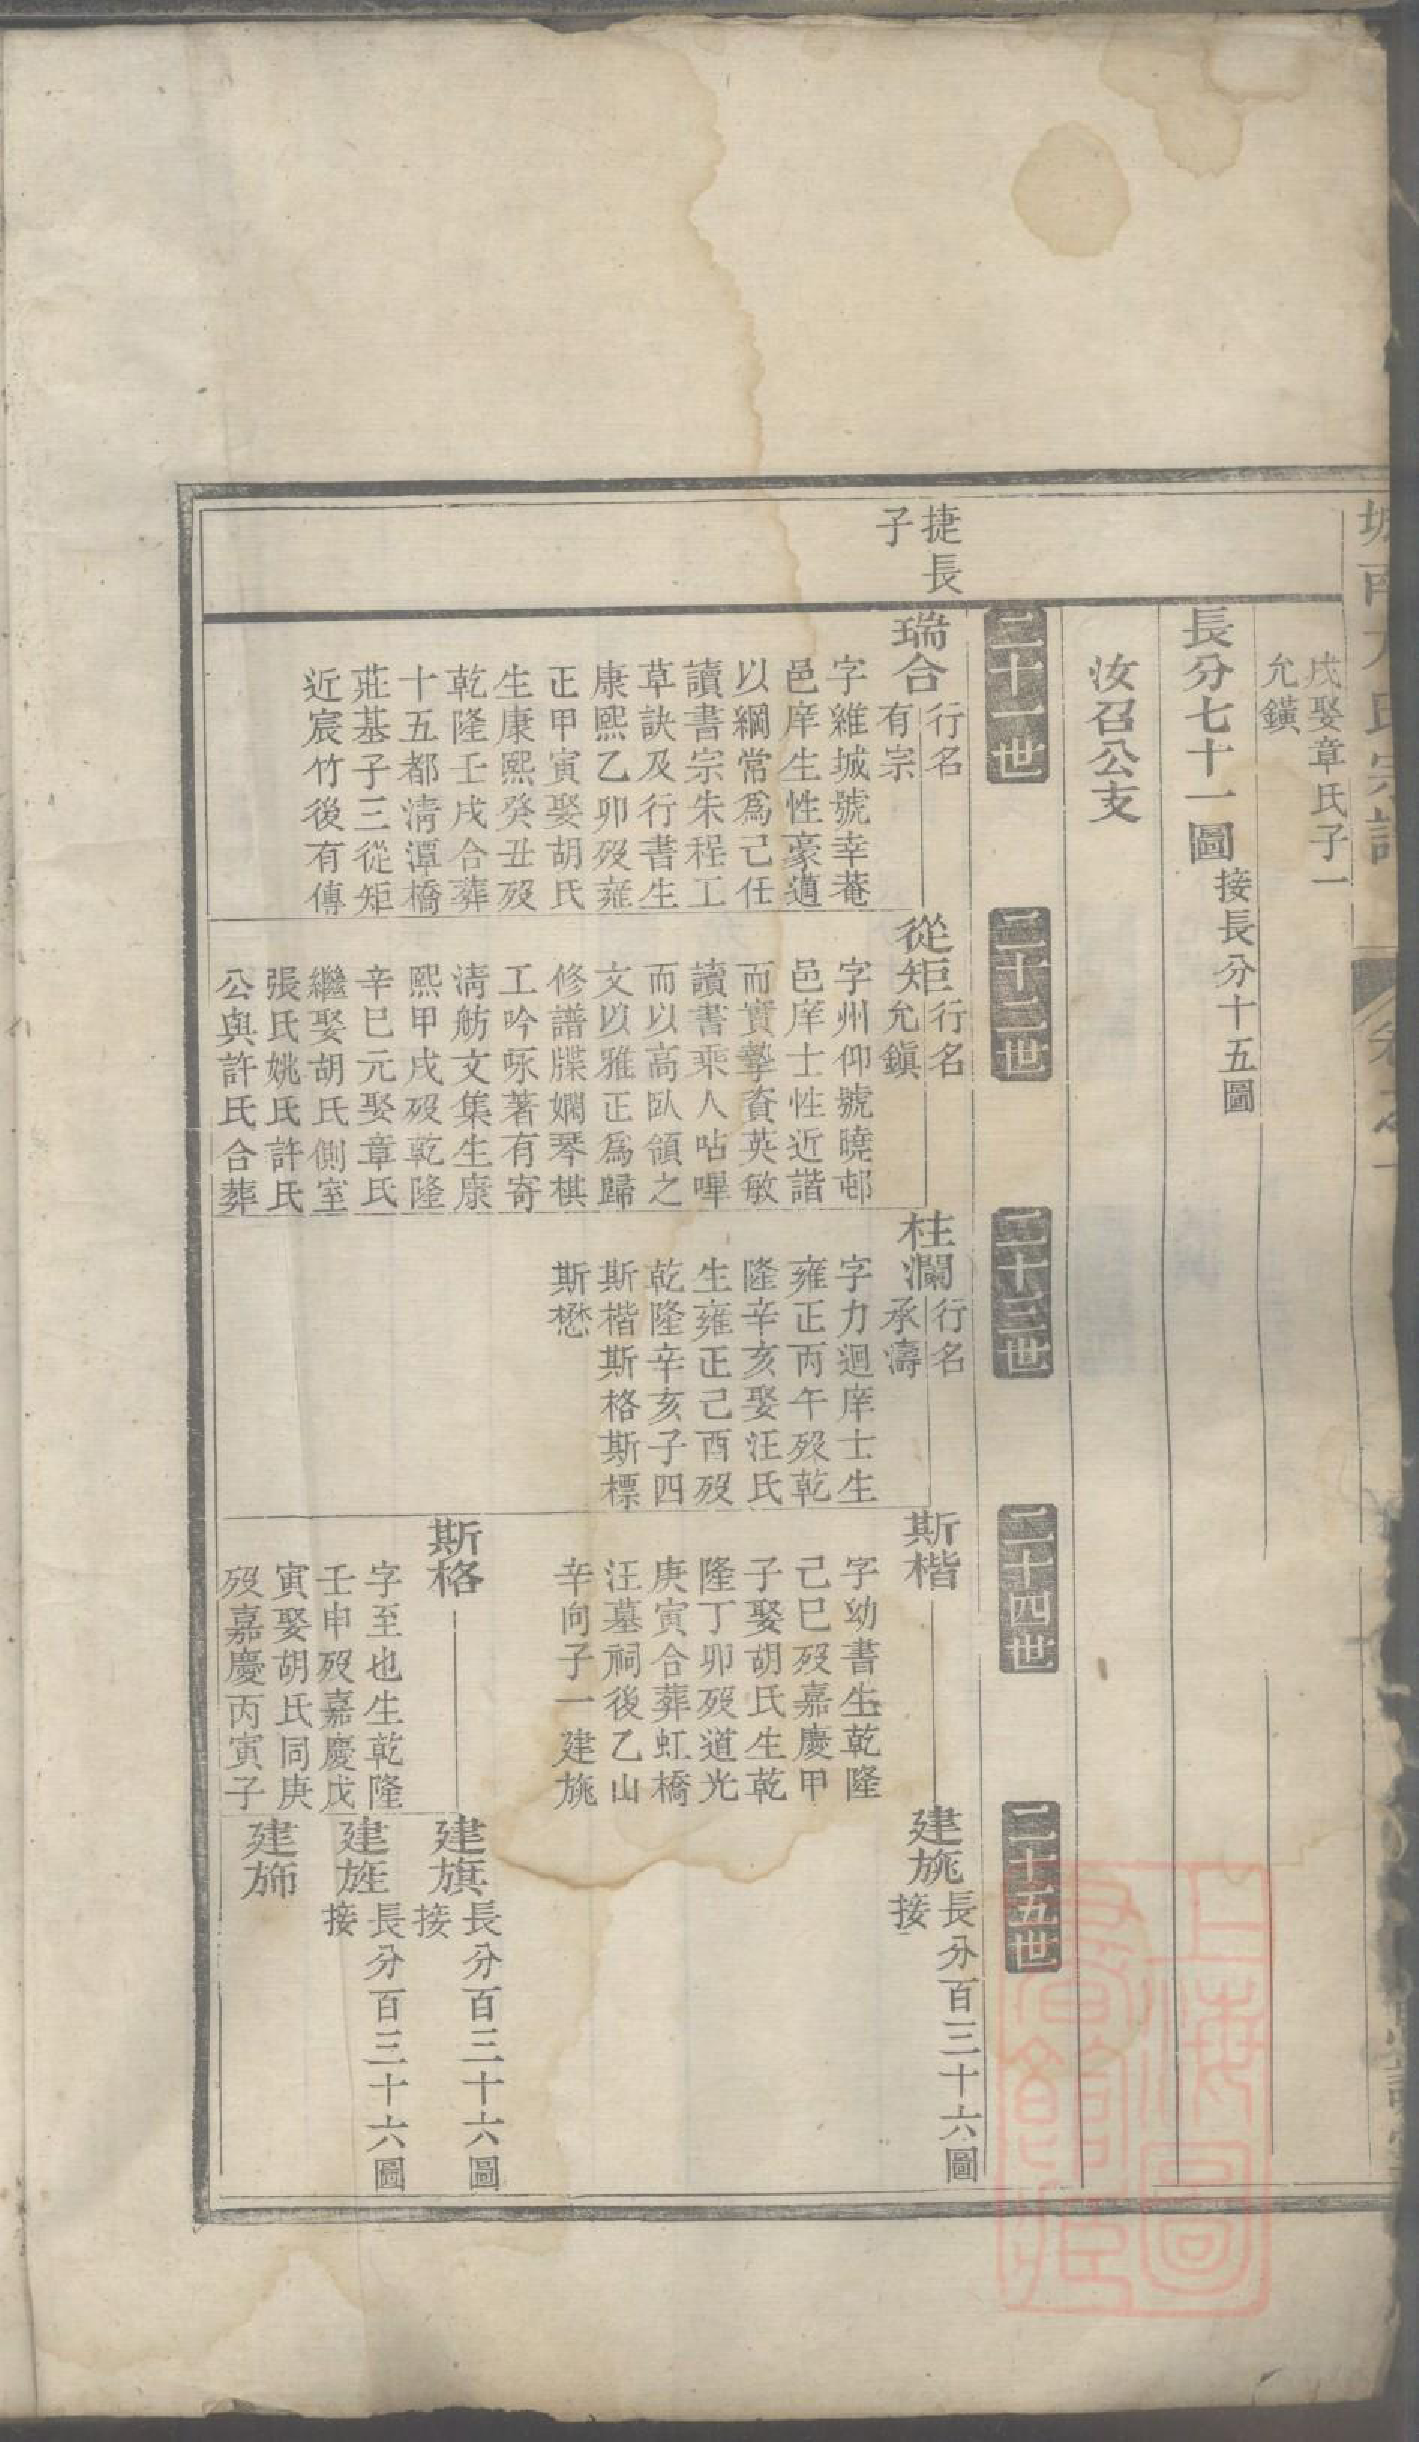 戊娶章氏子一
允鐄
長分七十一圖
接長分十五圖
汝召公支
二十一世
二十二世
二十三世
二十四世
二十五世
捷長
子
瑞合
行名
有宗
字維城號幸菴
邑庠生性豪邁
以綱常為己任
讀書宗朱程工
草訣及行書生
康熙乙卯歿雍
正甲寅娶胡氏
生康熙癸丑歿
乾隆壬戌合葬
十五都清潭橋
莊基子三從矩
近宸竹後有傳
從矩
行名
允鎮
字州仰號曉邨
邑庠士性近諧
而實摯資英敏
讀書乘人呫嗶
而以高臥領之
文以雅正為歸
修譜牒嫻琴棋
工吟咏著有寄
清舫文集生康
熙甲戌歿乾隆
辛巳元娶章氏
繼娶胡氏側室
張氏姚氏許氏
公與許氏合葬
柱瀾
行名
承濤
字力迴庠士生
雍正丙午歿乾
隆辛亥娶汪氏
生雍正己酉歿
乾隆辛亥子四
斯楷斯格斯標
斯懋
斯楷
字幼書生乾隆
己巳歿嘉慶甲
子娶胡氏生乾
隆丁卯歿道光
庚寅合葬虹橋
汪墓祠後乙山
辛向子一建旐
斯格
字至也生乾隆
壬申歿嘉慶戊
寅娶胡氏同庚
歿嘉慶丙寅子
建旐
長分百三十六圖
接
建旗
長分百三十六圖
接
建旌
長分百三十六圖
接
建斾
上海圖
書館藏